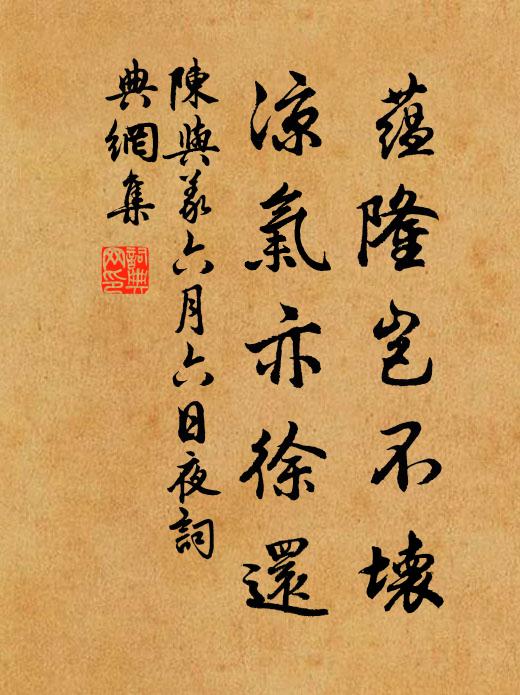 蘊隆豈不壞
涼氣亦徐還
陳與義六月六日夜詞
典網集
詞典
網印